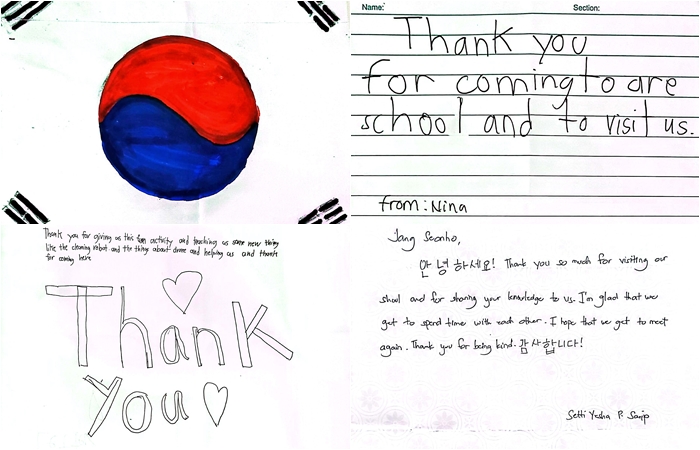 Name: Section:
Thank you
for coming to are
school and to visit us.
from: Nina
Thank you for giving us this fun activity and teaching us some new thing
like the cleaning robot and the things about drone and helping us and thank
for coming here
Thank
you
Jang Seonho,
안녕하세요! Thank you so much for visiting our
shool and for sharing your knowledge to us. I'm glad that we
get to spend time with each other. I hope that we get to meet
again. Thank you for being kind. 감사합니다!
Setti Yesha P.